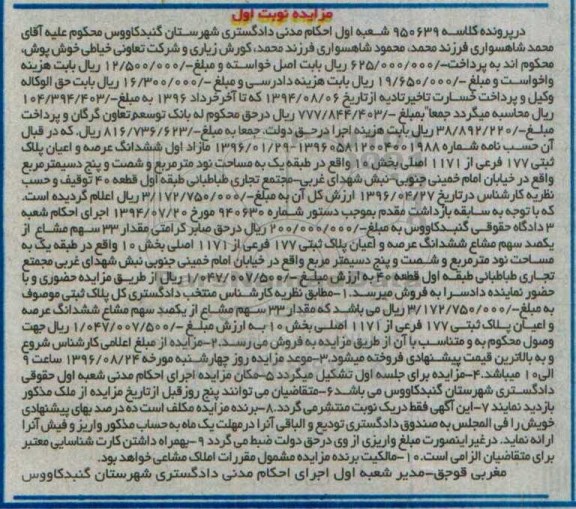 مزایده نوبت اول
درپرونده کلاسه ۹۵۰۶۳۹ شعبه اول احکام مدنی دادگستری شهرستان گنبدکاووس محکوم علیه آقای
محمد شاهسواری فرزند محمد، محمود شاهسواری فرزند محمد، کورش زیاری و شرکت تعاونی خیاطی خوش پوش،
محکوم اند به پرداخت-/۶۲۵/۰۰۰/۰۰۰ ریال بابت اصل خواسته و مبلغ-/۱۲/۵۰۰/۰۰۰ ریال بابت هزینه
واخواست و مبلغ -/۱۹/۶۵۰/۰۰۰ ریال بابت هزینه دادرسی و مبلغ -/۱۶/۳۰۰/۰۰۰ ریال بابت حق الوکاله
وکیل و پرداخت خسارت تاخیرتادیه ازتاریخ ۱۳۹۴/۰۸/۰۶ که تا آخرخرداد ۱۳۹۶ به مبلغ-/۱۰۴/۳۹۴/۴۰۳
ریال محاسبه میگردد جمعاً بمبلغ -/۷۷۷/۸۴۴/۴۰۳ ریال درحق محکوم له بانک توسعه‌تعاون گرگان و پرداخت
مبلغ-/۳۸/۸۹۲/۲۲۰ ریال بابت هزینه اجرا درحق دولت، جمعا به مبلغ-/۸۱۶/۷۳۶/۶۲۳ ریال، که در قبال
آن حسب نامه شماره ۱۳۹۶۰۵۸۱۲۰۰۴۰۰۱۹۸۸-۱۳۹۶/۰۱/۲۹ مازاد اول ششدانگ عرصه و اعیان پلاک
ثبتی ۱۷۷ فرعی از ۱۱۷۱ اصلی بخش ۱۰ واقع در طبقه یک به مساحت نود مترمربع و شصت و پنج دسیمتر مربع
واقع در خیابان امام خمینی جنوبی-نبش شهدای غربی-مجتمع تجاری طباطبائی طبقه اول قطعه ۴۰ توقیف و حسب
نظریه کارشناس درتاریخ ۱۳۹۶/۰۴/۲۷ ارزش کل آن به مبلغ-/۳/۱۷۲/۷۵۰/۰۰۰ ریال اعلام گردیده است.
که با توجه به سابقه بازداشت مقدم بموجب دستور شماره ۹۴۰۶۳۰ مورخ ۱۳۹۴/۰۷/۲۰ اجرای احکام شعبه
۳ دادگاه حقوقی گنبدکاووس به مبلغ-/۲۰۰/۰۰۰/۰۰۰ ریال درحق صابر کرامتی مقدار ۳۳ سهم مشاع از
یکصد سهم مشاع ششدانگ عرصه و اعیان پلاک ثبتی ۱۷۷ فرعی از ۱۱۷۱ اصلی بخش ۱۰ واقع در طبقه یک به
مساحت نود مترمربع و شصت و پنج دسیمتر مربع واقع در خیابان امام خمینی جنوبی نبش شهدای غربی مجمتع
تجاری طباطبائی طبقه اول قطعه ۴۰ به ارزش مبلغ-/۱/۰۴۷/۰۰۷/۵۰۰ ریال از طریق مزایده حضوری و با
حضور نماینده دادسرا به فروش میرسد.۱-مطابق نظریه کارشناس منتخب دادگستری کل پلاک ثبتی موصوف
به مبلغ-/۳/۱۷۲/۷۵۰/۰۰۰ ریال می باشد که مقدار ۳۳ سهم مشاع از یکصد سهم مشاع ششدانگ عرصه
و اعیان پلاک ثبتی ۱۷۷ فرعی از ۱۱۷۱ اصلی بخش ۱۰ به ارزش مبلغ -/۱/۰۴۷/۰۰۷/۵۰۰ ریال جهت
وصول محکوم به و متناسب با آن از طریق مزایده به فروش می رسد.۲-مزایده از مبلغ اعلامی کارشناس شروع
و به بالاترین قیمت پیشنهادی فروخته میشود.۳-موعد مزایده روز چهارشنبه مورخه ۱۳۹۶/۰۸/۲۴ ساعت ۹
الی۱۰ میباشد.۴-مزایده برای جلسه اول تشکیل میگردد ۵-مکان مزایده اجرای احکام مدنی شعبه اول حقوقی
دادگستری شهرستان گنبدکاووس می باشد۶-متقاضیان می توانند پنج روز قبل ازتاریخ مزایده از ملک مذکور
بازدید نمایند ۷-این آگهی فقط دریک نوبت منتشر می گردد.۸-برنده مزایده مکلف است ده درصد بهای پیشنهادی
خویش را فی المجلس به صندوق دادگستری تودیع و الباقی آنرا درمهلت یک ماه به حساب مذکور واریز و فیش آنرا
ارائه نماید. درغیر اینصورت مبلغ واریزی از وی درحق دولت ضبط می گردد ۹-بهمراه داشتن کارت شناسایی معتبر
برای متقاضیان الزامی است.۱۰-مالکیت برنده مزایده مشمول مقررات املاک مشاعی خواهد بود.
مغربی قوجق-مدیر شعبه اول اجرای احکام مدنی دادگستری شهرستان گنبدکاووس